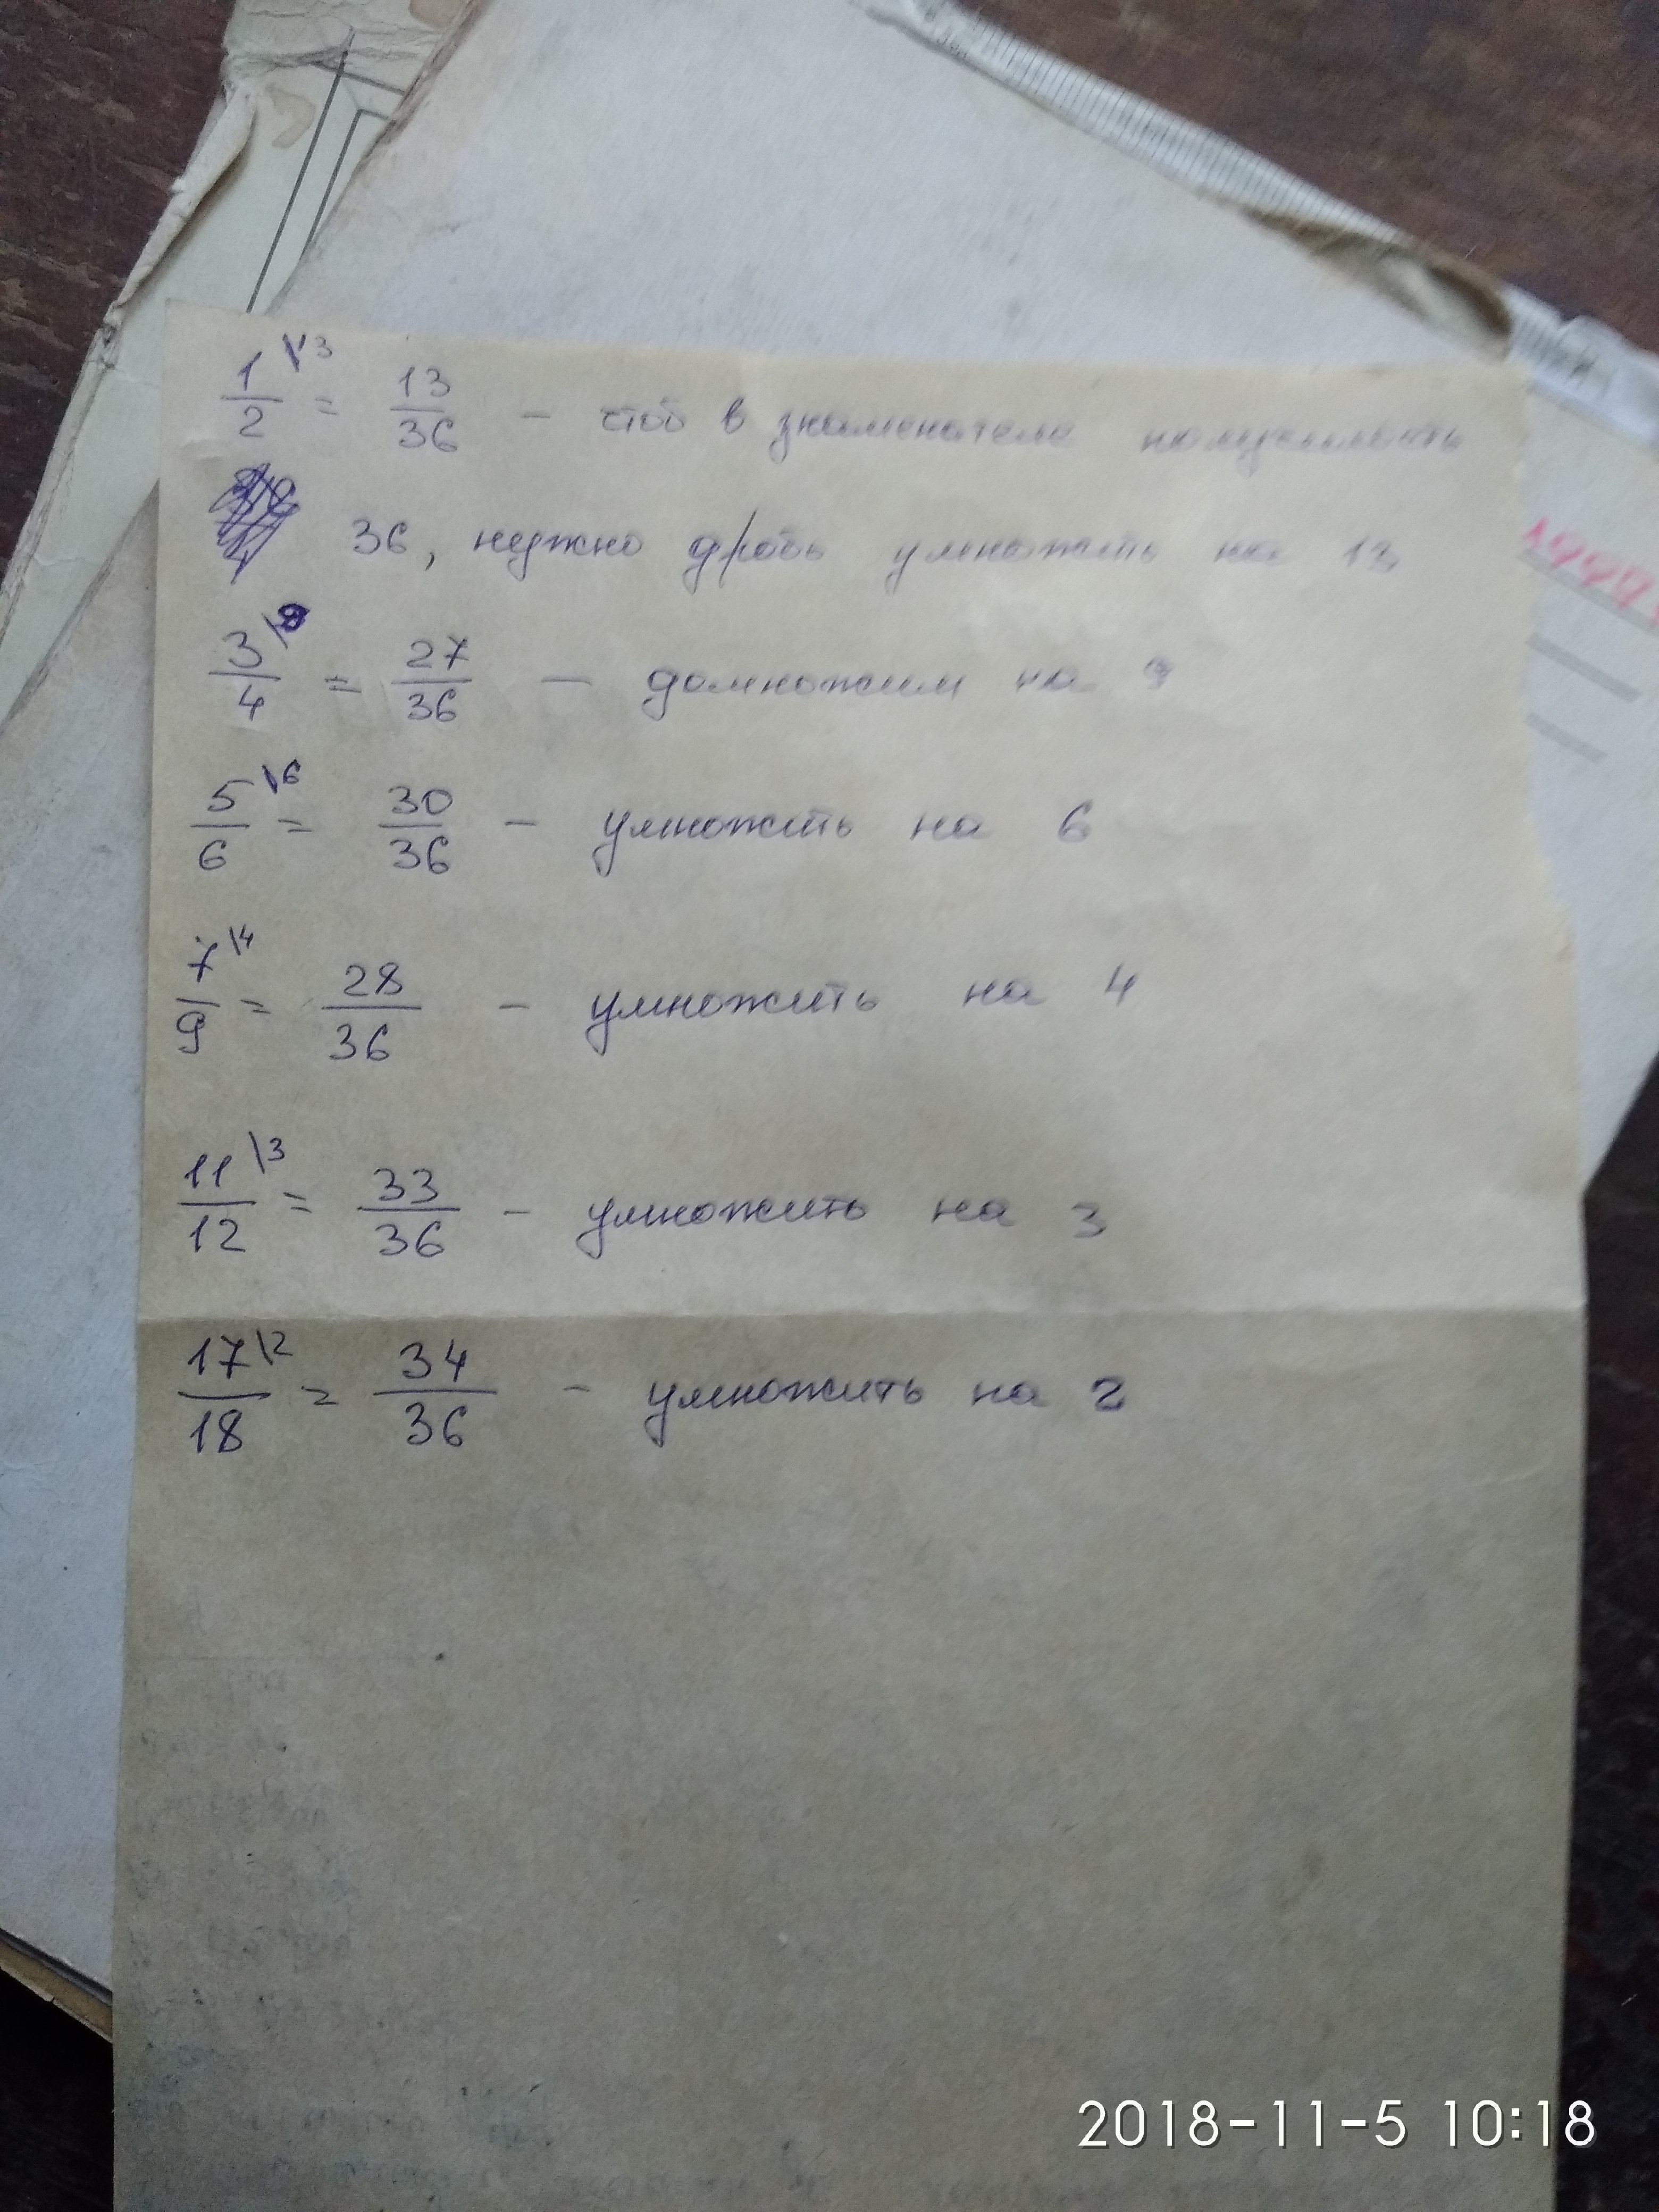 1\13/2 = 13/36 - чтоб в знаменателе получилось
36, нужно дробь умножить на 13
3\9/4 = 27/36 - домножим на 9
5\6/6 = 30/36 - умножить на 6
7\4/9 = 28/36 - умножить на 4
11\3/12 = 33/36 - умножить на 3
17\2/18 = 34/36 - умножить на 2
2018-11-5 10:18